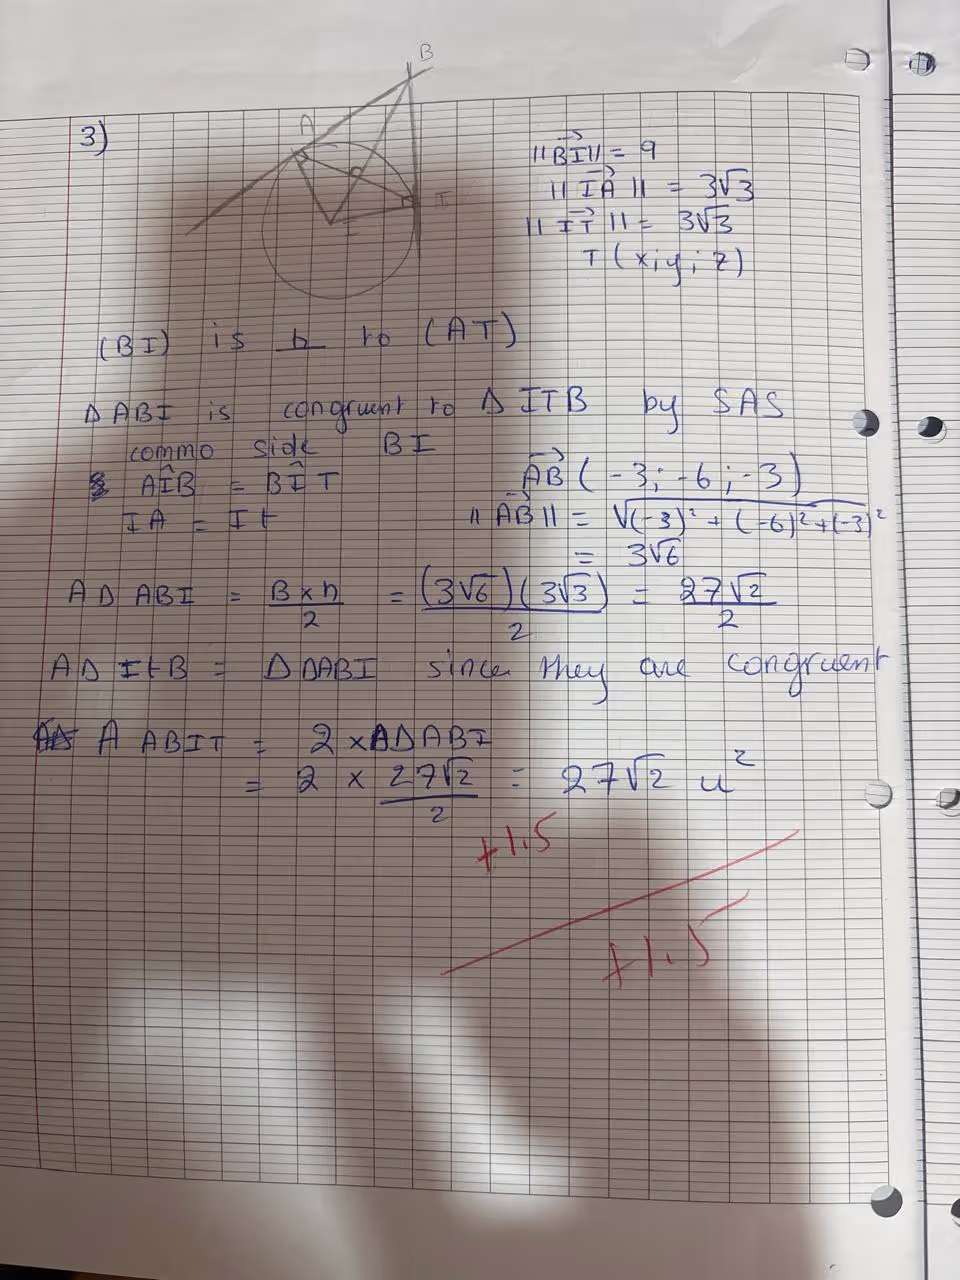 3)
B
A
I
T
||BI|| = 9
|| IA || = 3√3
|| IT || = 3√3
T ( x; y; z)
(BI) is ⊥ to (AT)
Δ ABI is congruent to Δ ITB by SAS
commo side BI
AÎB = BÎT
IA = It
AB ( -3; -6; -3)
|| AB || = √(-3)² + (-6)² + (-3)²
= 3√6
AΔ ABI = B x h / 2 = (3√6)(3√3) / 2 = 27√2 / 2
AΔ ItB = ΔΔABI since they are congruent
A ABIT = 2 x AΔABI
= 2 x 27√2 / 2 = 27√2 u²
+1.5
+1.5